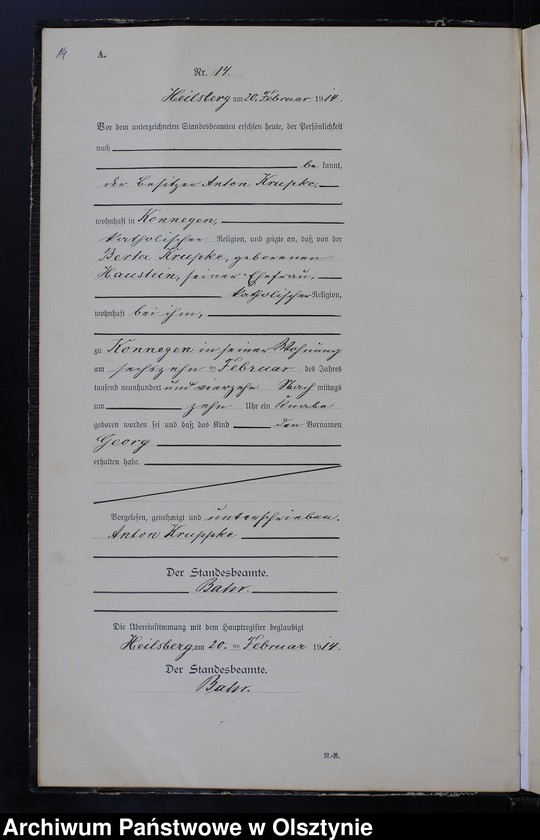 14
A.
Nr. 14.
Heilsberg am 20. Februar 1914.
Vor dem unterzeichneten Standesbeamten erschien heute, der Persönlichkeit
nach
be kannt,
der Besitzer Anton Krupke,
wohnhaft in Konnegen,
katholischer Religion, und zeigte an, daß von der
Berta Krupke, geborenen
Haustein, seiner Ehefrau,
katholischer Religion,
wohnhaft bei ihm,
zu Konnegen in seiner Wohnung
am sechszehn ten Februar des Jahres
tausend neunhundert und vierzehn Nach mittags
um zehn Uhr ein Knabe
geboren worden sei und daß das Kind den Vornamen
Georg
erhalten habe.
Vorgelesen, genehmigt und unterschrieben.
Anton Kruppke
Der Standesbeamte.
Bahr.
Die Übereinstimmung mit dem Hauptregister beglaubigt
Heilsberg, am 20. ten Februar 1914.
Der Standesbeamte.
Bahr.
N.-R.
Archiwum Państwowe w Olsztynie